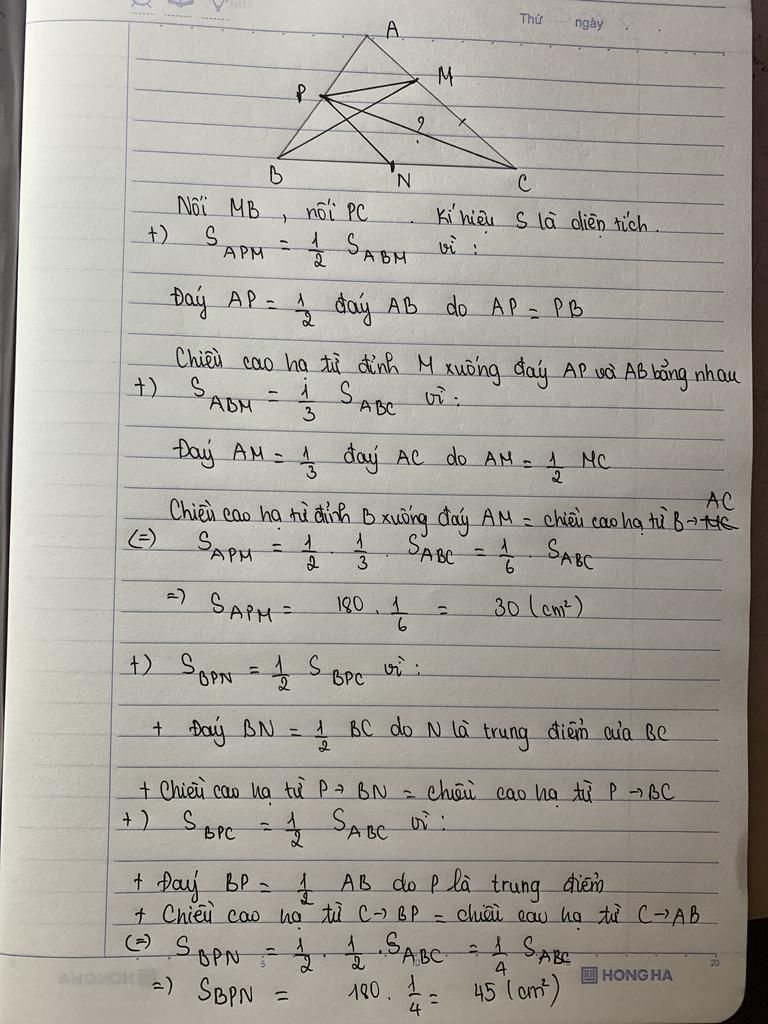 Thứ ngày
A
M
P
?
B
N
C
Nối MB , nối PC . Kí hiệu S là diện tích.
+) S_APM = 1/2 S_ABM vì :
Đáy AP = 1/2 đáy AB do AP = PB
Chiều cao hạ từ đỉnh M xuống đáy AP và AB bằng nhau
+) S_ABM = 1/3 S_ABC vì :
Đáy AM = 1/3 đáy AC do AM = 1/2 MC
AC
Chiều cao hạ từ đỉnh B xuống đáy AM = chiều cao hạ từ B → MC
(=) S_APM = 1/2 . 1/3 . S_ABC = 1/6 . S_ABC
=) S_APM = 180 . 1/6 = 30 (cm²)
+) S_BPN = 1/2 S_BPC vì :
+ Đáy BN = 1/2 BC do N là trung điểm của BC
+ Chiều cao hạ từ P → BN = chiều cao hạ từ P → BC
+) S_BPC = 1/2 S_ABC vì :
+ Đáy BP = 1/2 AB do P là trung điểm
+ Chiều cao hạ từ C → BP = chiều cao hạ từ C → AB
(=) S_BPN = 1/2 . 1/2 . S_ABC = 1/4 S_ABC
=) S_BPN = 180 . 1/4 = 45 (cm²)
5 20
HONG HA